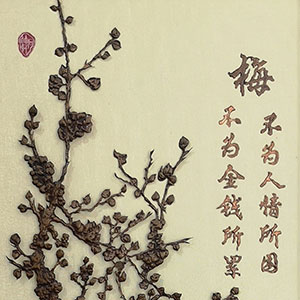 梅
不为人情所困
不为金钱所累